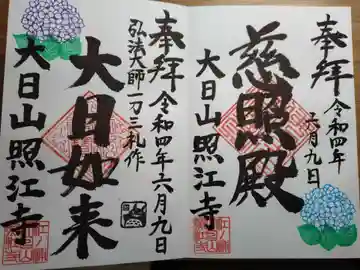 奉拝
令和四年
六月九日
慈照殿
大日山照江寺
奉拝
令和四年六月九日
弘法大師一刀三礼作
大日如来
大日山照江寺